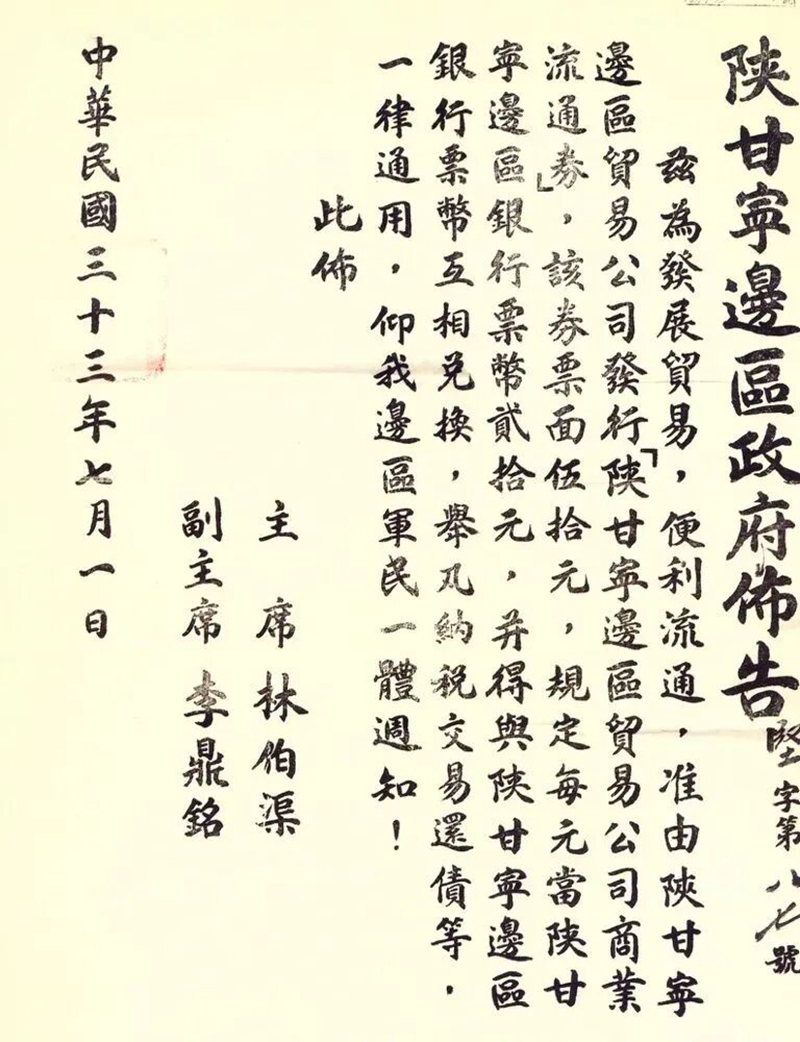 陝甘寧邊區政府佈告
堅字第八七號
茲為發展貿易，便利流通，准由陝甘寧
邊區貿易公司發行「陝甘寧邊區貿易公司商業
流通券」，該券票面伍拾元，規定每元當陝甘
寧邊區銀行票幣貳拾元，并得與陝甘寧邊區
銀行票幣互相兌換，舉凡納稅交易還債等，
一律通用，仰我邊區軍民一體週知！
此佈
主席 林伯渠
副主席 李鼎銘
中華民國三十三年七月一日